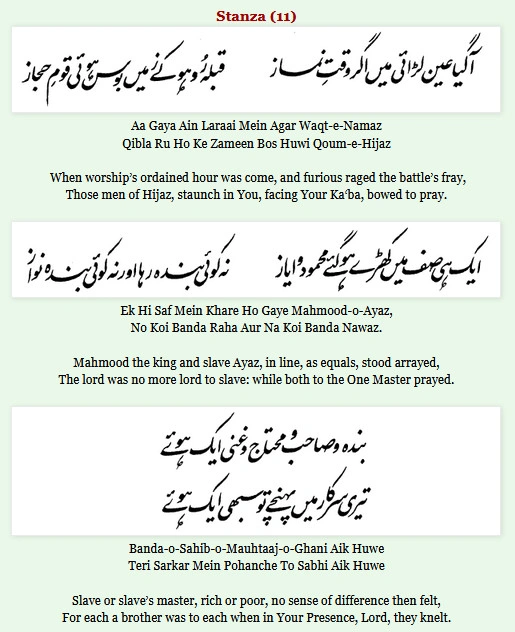 Stanza (11)
آگیا عین لڑائی میں اگر وقتِ نماز
قبلہ رُو ہو کے زمیں بوس ہوئی قومِ حجاز
Aa Gaya Ain Laraai Mein Agar Waqt-e-Namaz
Qibla Ru Ho Ke Zameen Bos Huwi Qoum-e-Hijaz
When worship’s ordained hour was come, and furious raged the battle’s fray,
Those men of Hijaz, staunch in You, facing Your Ka‘ba, bowed to pray.
ایک ہی صف میں کھڑے ہو گئے محمود و ایاز
نہ کوئی بندہ رہا اور نہ کوئی بندہ نواز
Ek Hi Saf Mein Khare Ho Gaye Mahmood-o-Ayaz,
No Koi Banda Raha Aur Na Koi Banda Nawaz.
Mahmood the king and slave Ayaz, in line, as equals, stood arrayed,
The lord was no more lord to slave: while both to the One Master prayed.
بندہ و صاحب و محتاج و غنی ایک ہوئے
تیری سرکار میں پہنچے تو سبھی ایک ہوئے
Banda-o-Sahib-o-Mauhtaaj-o-Ghani Aik Huwe
Teri Sarkar Mein Pohanche To Sabhi Aik Huwe
Slave or slave’s master, rich or poor, no sense of difference then felt,
For each a brother was to each when in Your Presence, Lord, they knelt.